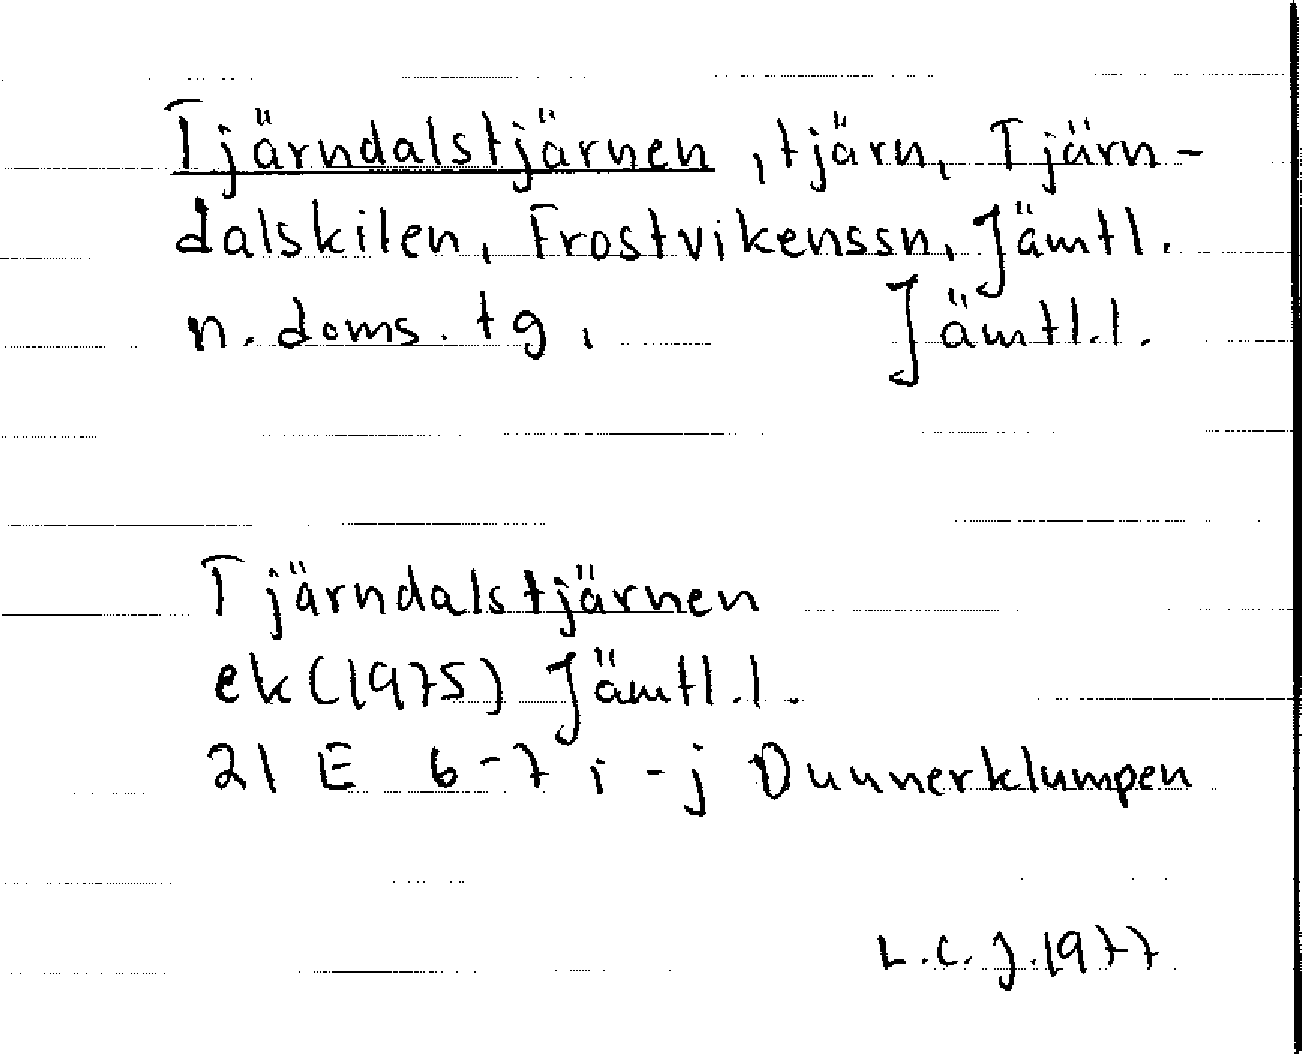 Tjärndalstjärnen, tjärn, Tjärn-
dalskilen, Frostvikenssn, Jämtl.
n. doms. tg, Jämtl.l.
Tjärndalstjärnen
ek(1975) Jämtl.l.
21 E 6-7 i-j Dunnerklumpen
L.C.J.1977